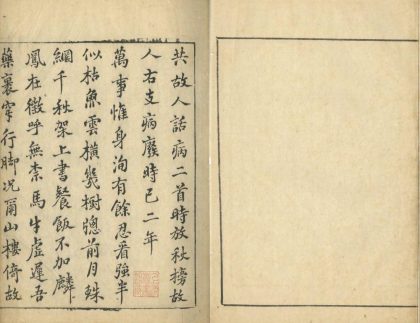 共故人話病二首時放秋榜故
人右支病廢時已二年
萬事惟身洵有餘忍看強半
似枯魚雲橫樹牕前月蛛
網千秋架上書餐飯不加麟
鳳在徵呼無柰馬牛虛遲吾
藥裹穿行脚況爾山樓倚故